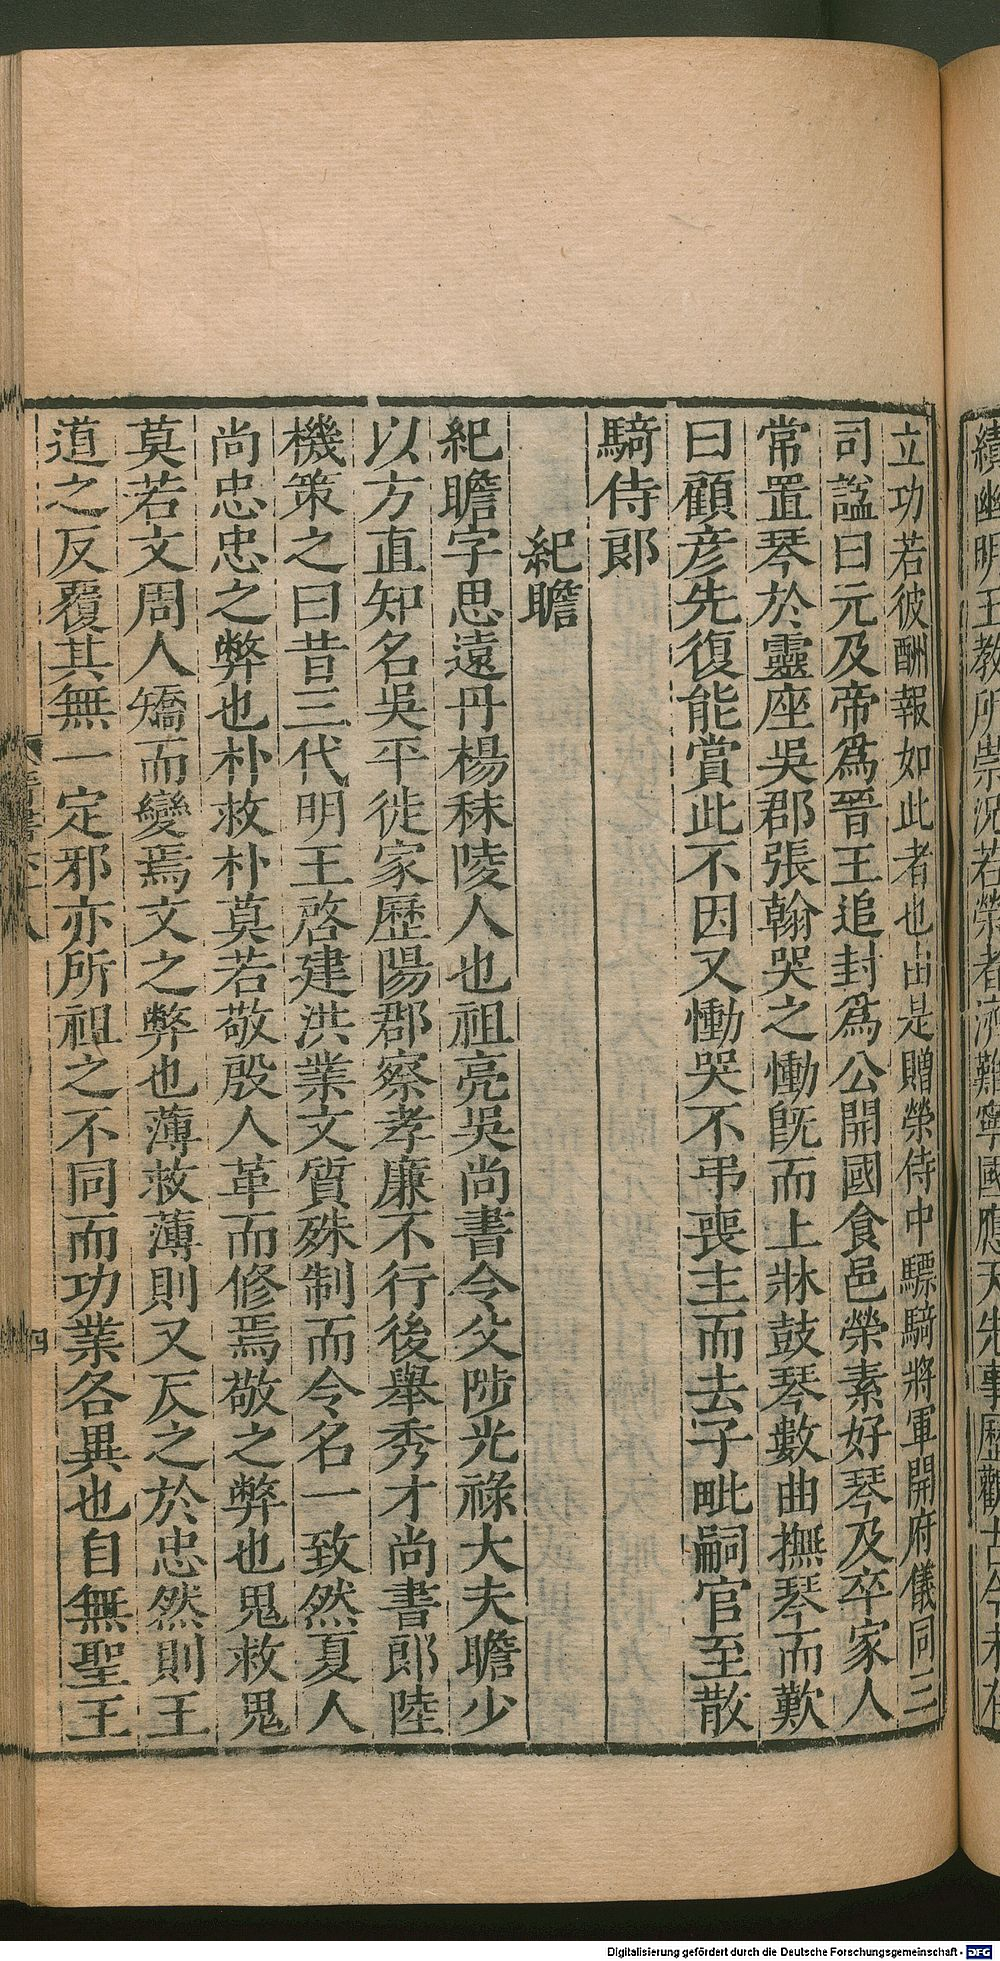 績幽明王教所崇況若榮者濟難寧國應天先事歷觀古今未有
立功若彼酬報如此者也由是贈榮侍中驃騎將軍開府儀同三
司諡曰元及帝爲晉王追封爲公開國食邑榮素好琴及卒家人
常置琴於靈座吳郡張翰哭之慟旣而上牀鼓琴數曲撫琴而歎
曰顧彥先復能賞此不因又慟哭不弔喪主而去子毗嗣官至散
騎侍郎
紀瞻
紀瞻字思遠丹楊秣陵人也祖亮吳尚書令父陟光祿大夫瞻少
以方直知名吳平徙家歷陽郡察孝廉不行後舉秀才尚書郎陸
機策之曰昔三代明王啓建洪業文質殊制而令名一致然夏人
尚忠忠之弊也朴救朴莫若敬殷人革而修焉敬之弊也鬼救鬼
莫若文周人矯而變焉文之弊也薄救薄則又反之於忠然則王
道之反覆其無一定邪亦所祖之不同而功業各異也自無聖王
四
Digitalisierung gefördert durch die Deutsche Forschungsgemeinschaft - DFG